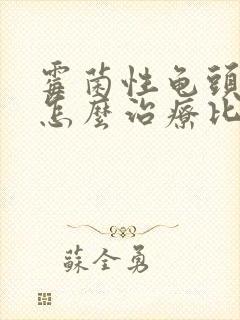 霉菌性龟頭
怎麼治療比
蘇全勇